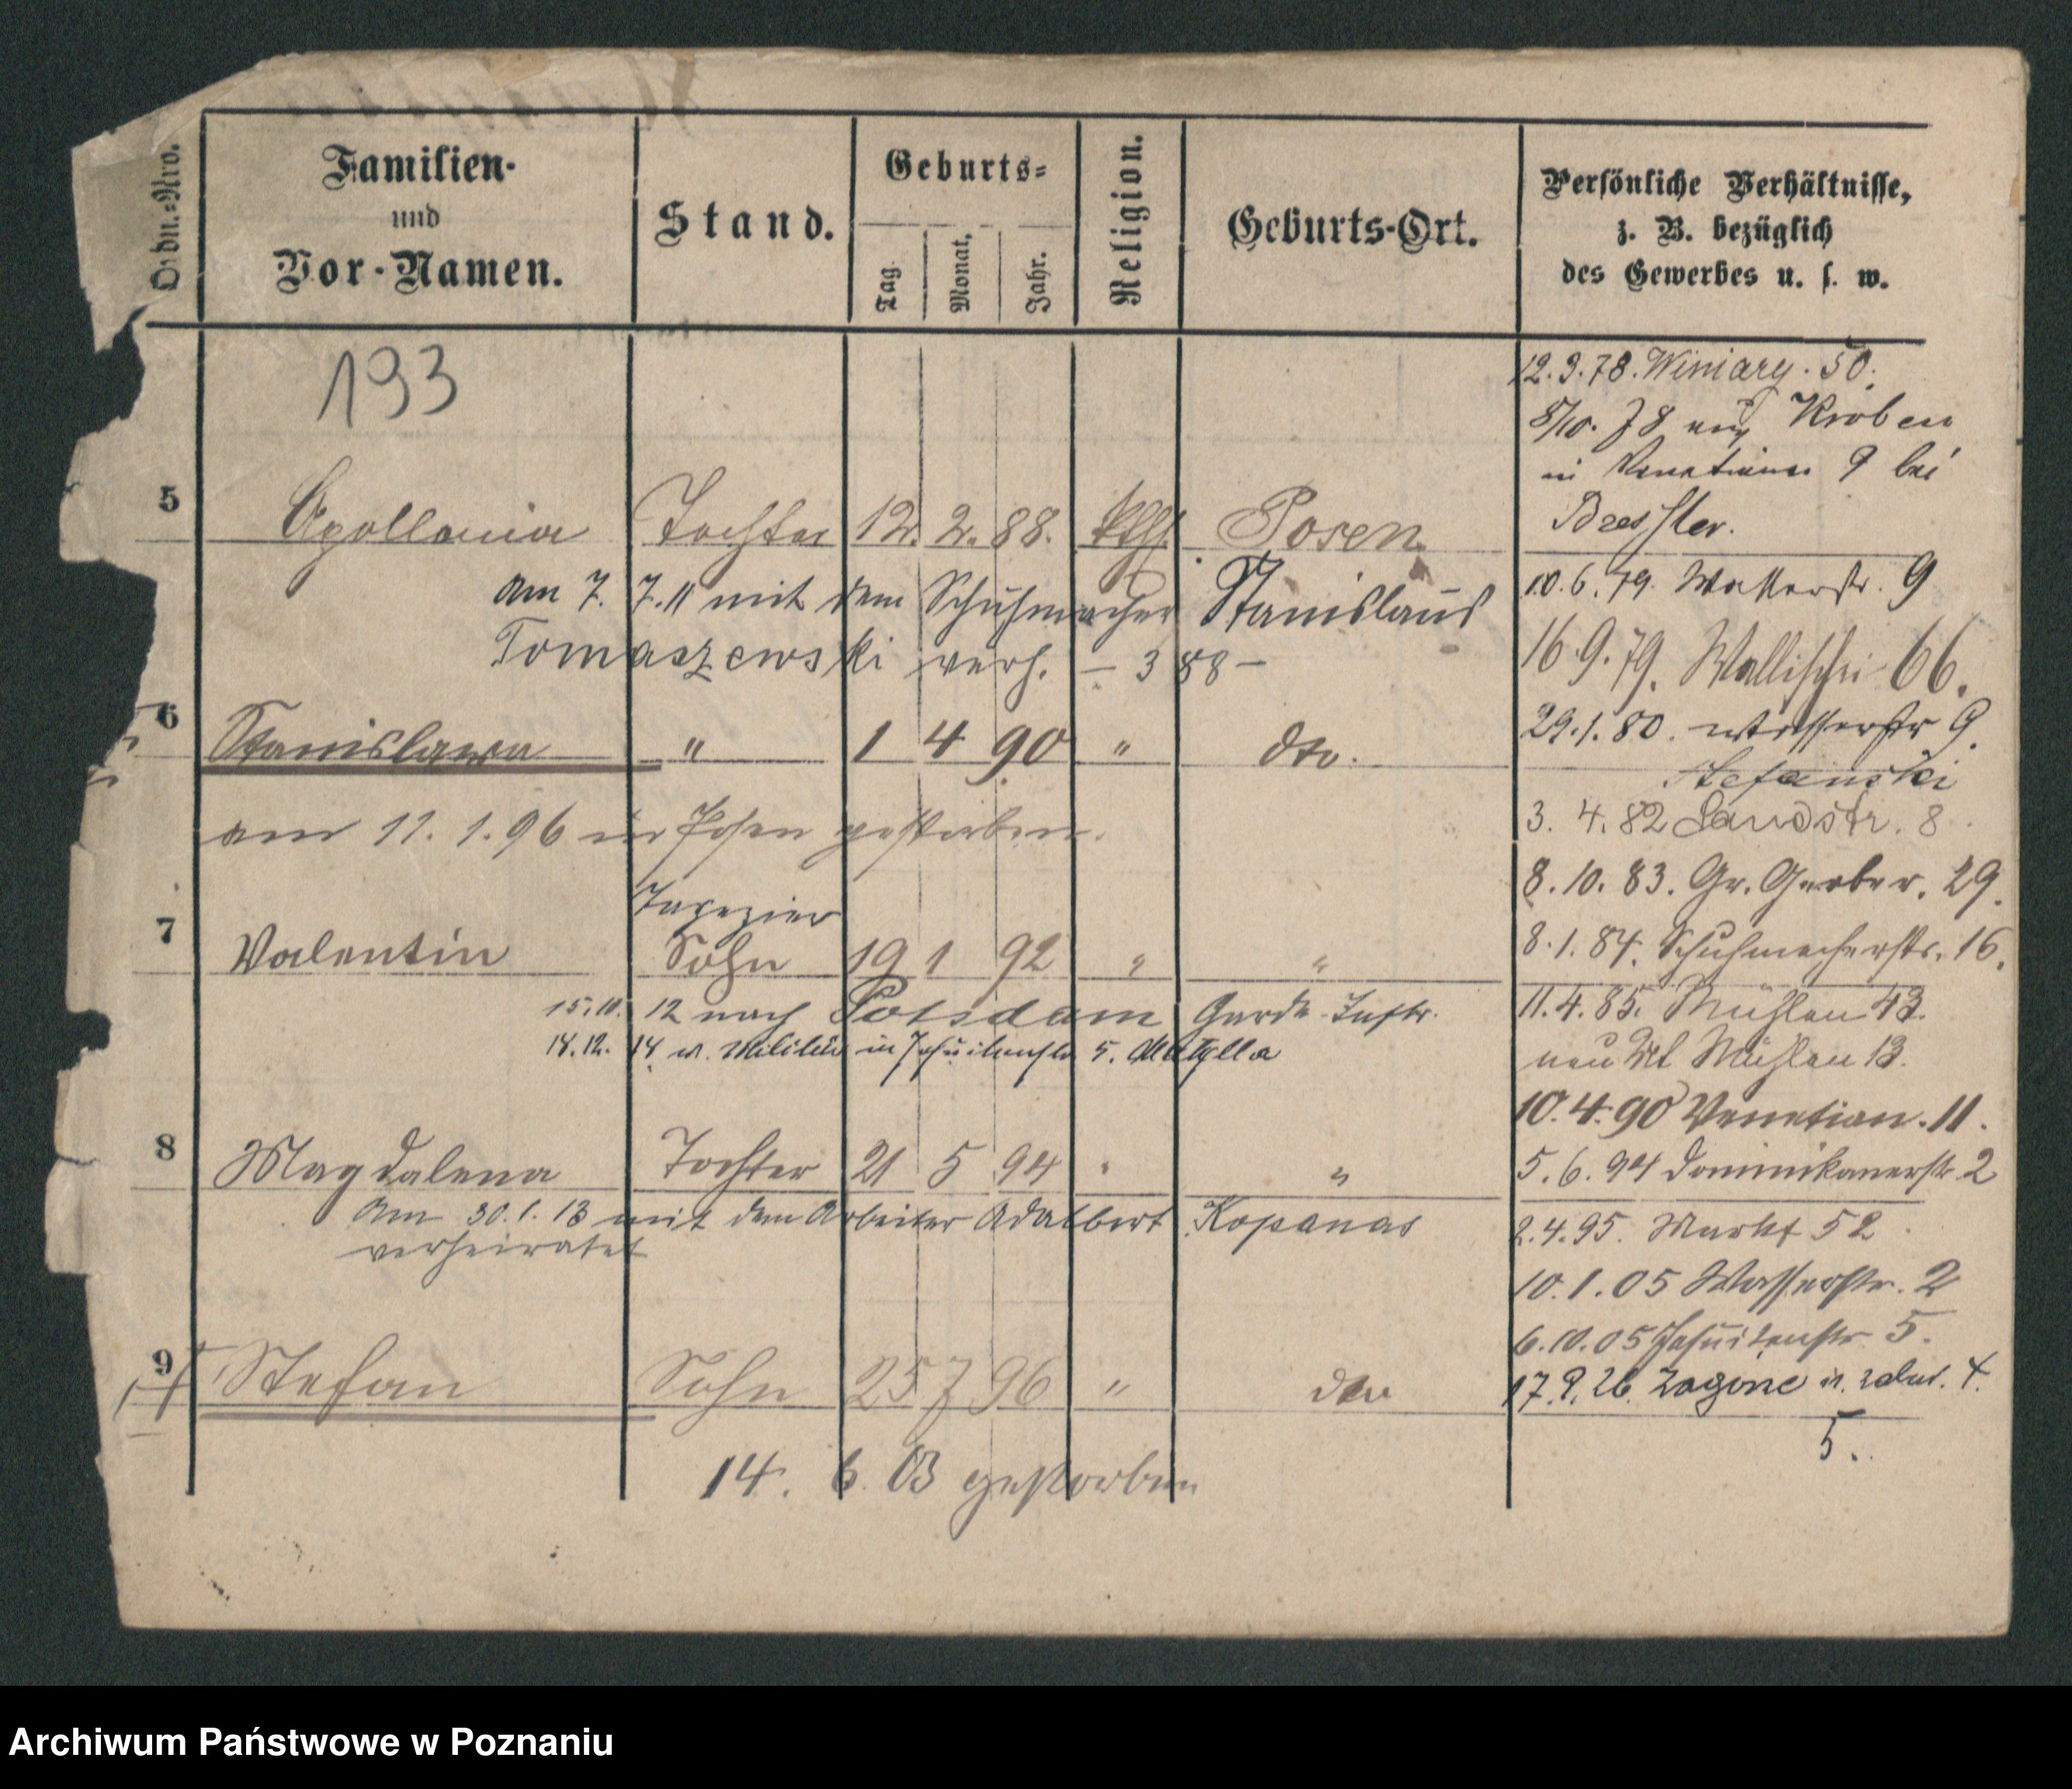 Ordn.-Nro.
Familien-
und
Vor-Namen.
Stand.
Geburts-
Tag.
Monat.
Jahr.
Religion.
Geburts-Ort.
Persönliche Verhältnisse,
z. B. bezüglich
des Gewerbes u. s. w.
193
5 Apollonia Tochter 12. 2. 88. kth. Posen
Am 7. 7. 11 mit dem Schuhmacher Stanislaus
Tomaszewski verh. – 388 –
6 Stanislawa " 1 4 90 " dto.
am 11. 1. 96 in Posen gestorben.
Tapezier
7 Valentin Sohn 19 1 92 " "
15. 10. 12 nach Potsdam Garde Inftr.
14. 12. 14 v. Militär in Jesuitenstr 5. Matylla
8 Magdalena Tochter 21 5 94 " "
Am 30. 1. 13 mit dem Arbeiter Adalbert Kopanas
verheiratet
9 Stefan Sohn 25 7 96 " dto
14. 6. 03 gestorben
12. 3. 78. Winiary. 50.
8/10. 78 aus Kroben
in Venetianer 9 bei
Bressler.
10. 6. 79. Wasserstr. 9
16. 9. 79. Wallischei 66.
29. 1. 80. Wasserstr 9.
Stefanski
3. 4. 82 Sandstr. 8.
8. 10. 83. Gr. Gerber. 29.
8. 1. 84. Schuhmacherstr. 16.
11. 4. 85. Mühlen 43.
neu Mühlen 13.
10. 4. 90 Venetian. 11.
5. 6. 94 Dominikanerstr. 2
2. 4. 95. Markt 52.
10. 1. 05 Wasserstr. 2
6. 10. 05 Jesuitenstr. 5.
17. 9. 26. Zagórze 4.
5.
Archiwum Państwowe w Poznaniu